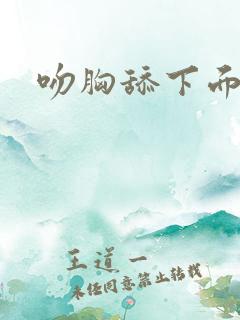 吻胸舔下而
王道一
未经同意禁止转载